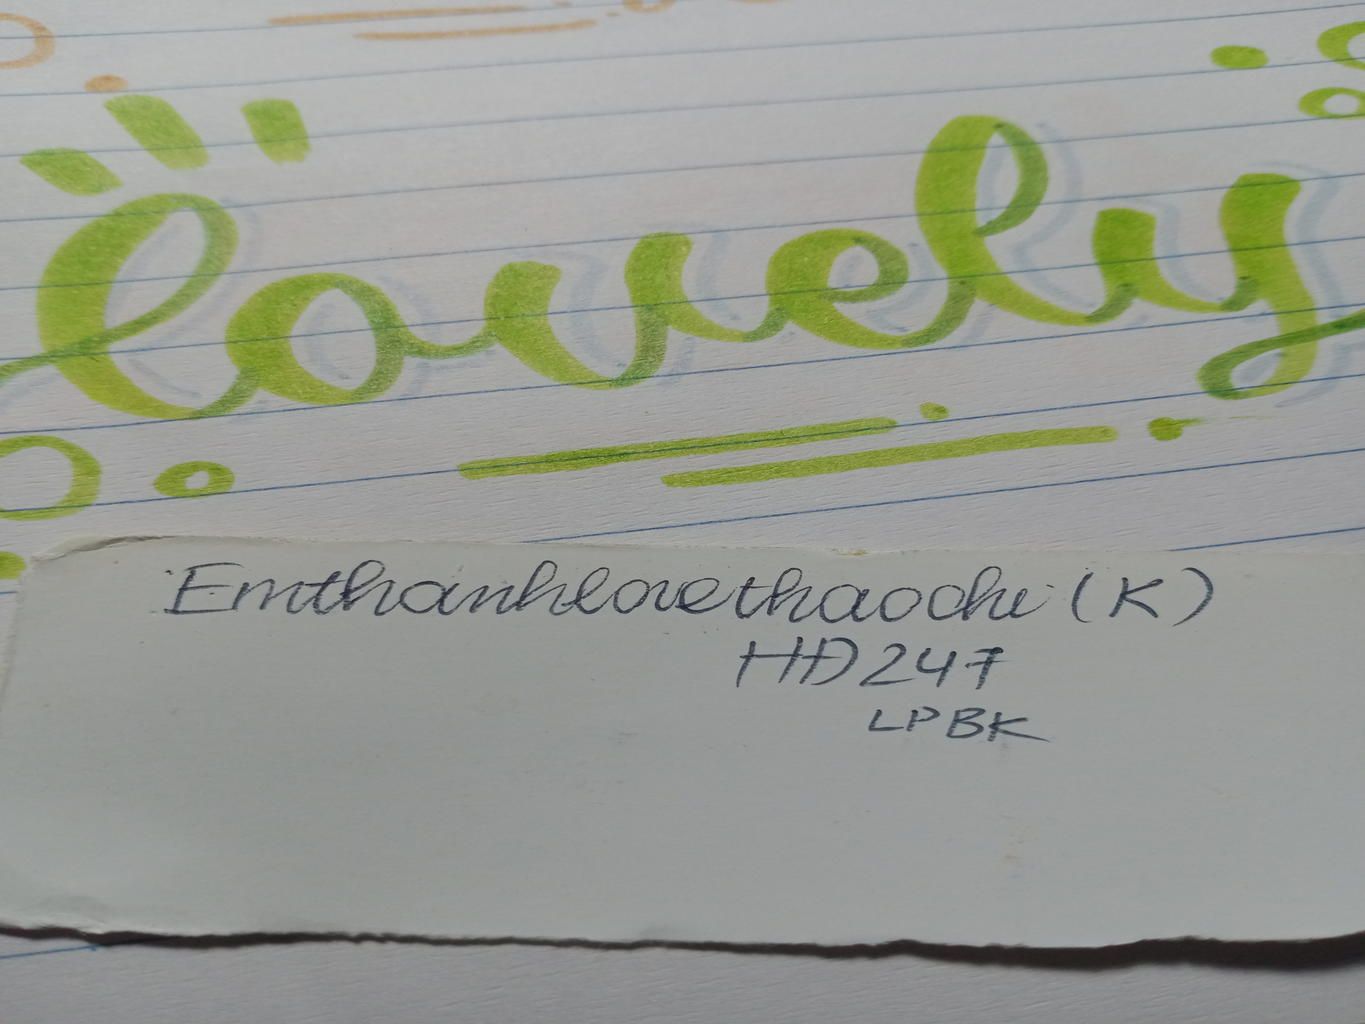 lovely
Emthanhlovethaochi (K)
HĐ247
LPBK